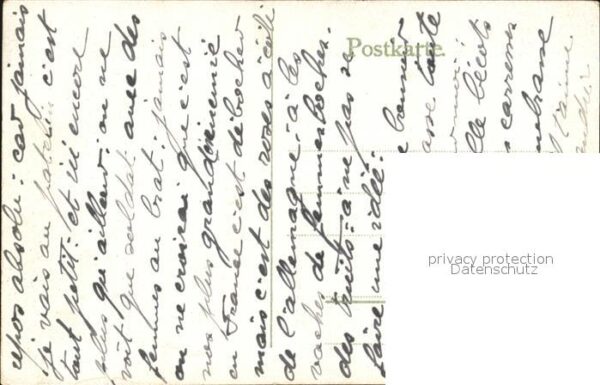 repos absolu : car jamais
je vais au patelin c'est
tout petit : et ici encore
plus qu'ailleurs : on ne
voit que soldat avec des
femmes au bras : jamais
on ne croirai que c'est
nos plus grand ennemie
en France c'est de boches
mais c'est des roses à côté
de l'allemagne : à les
vaches de femmes boches.
des truits : a ne pas se
faire une idée :
bonnes
toute
lle bécots
s carresses
embrasse
t'aime
Postkarte.
privacy protection
Datenschutz